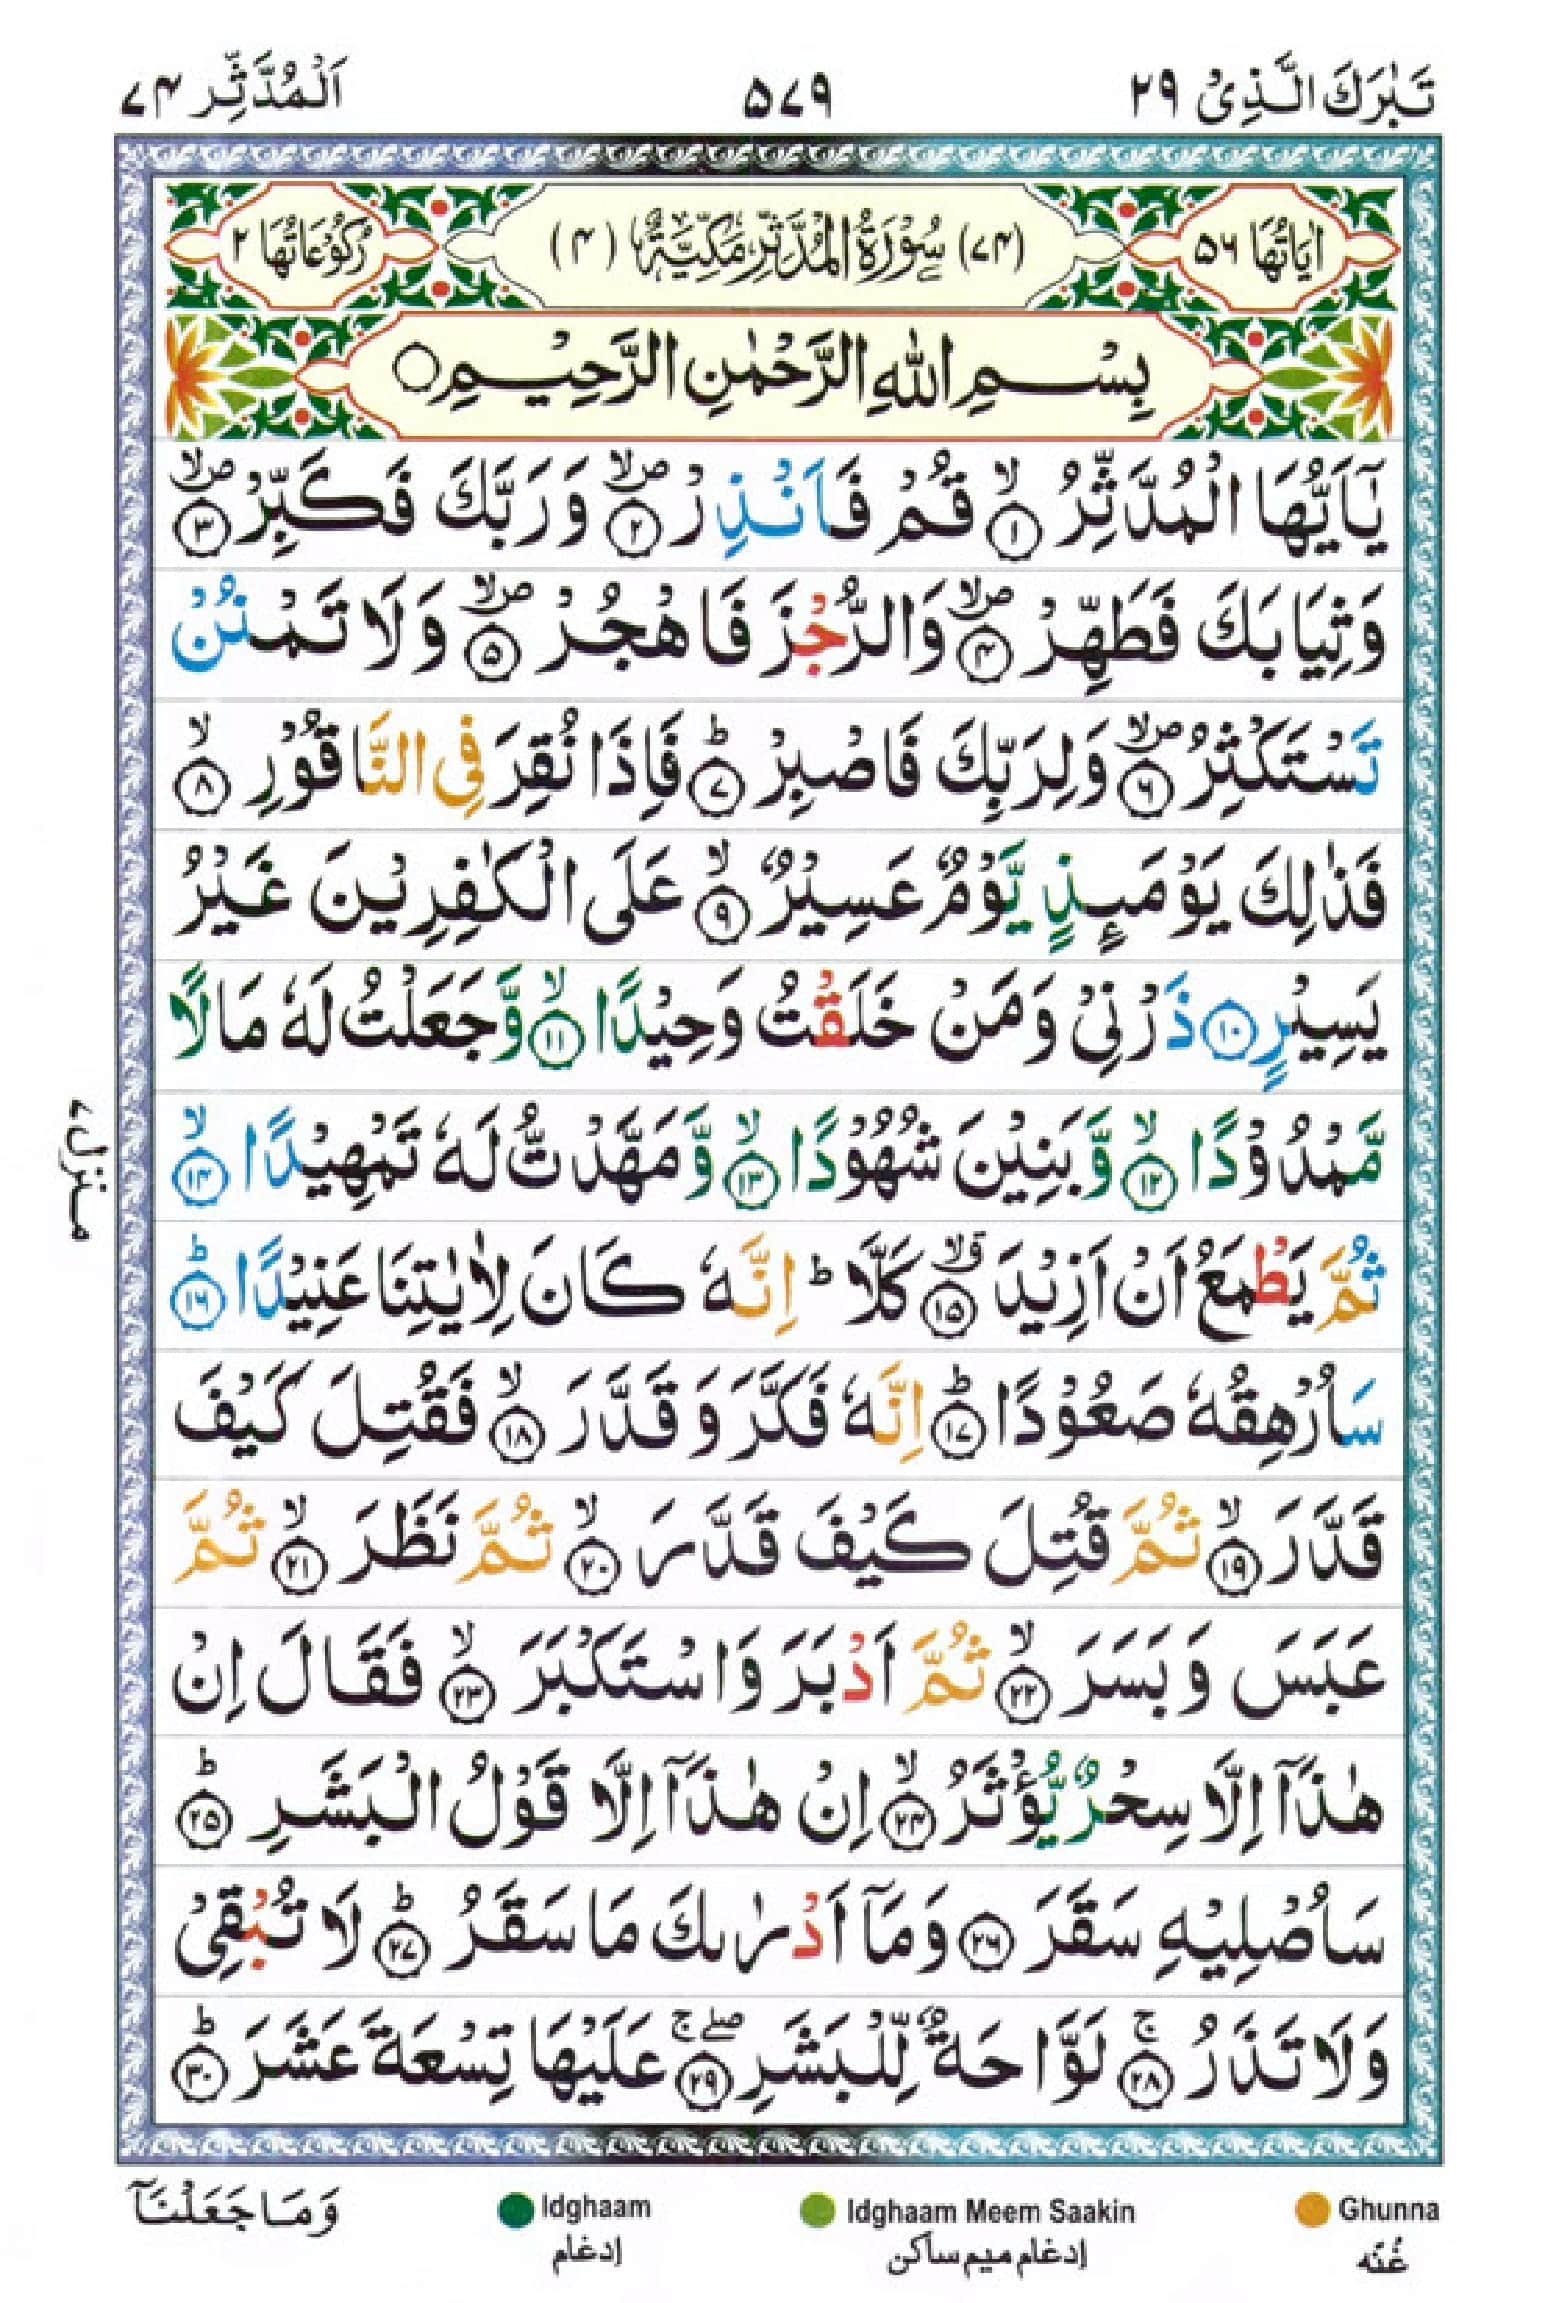 تَبٰرَكَ الَّذِىْ ۲۹
۵۷۹
اَلْمُدَّثِّر ۷۴
اٰيَاتُهَا ۵۶
(۷۴) سُوْرَةُ الْمُدَّثِّرِ مَكِّيَّةٌ (۴)
رُكُوْعَاتُهَا ۲
بِسْمِ اللّٰهِ الرَّحْمٰنِ الرَّحِيْمِ ○
يٰۤاَيُّهَا الْمُدَّثِّرُ ۙ‏﴿۱﴾ قُمْ فَاَنْذِرْ ۪ۙ‏﴿۲﴾ وَرَبَّكَ فَكَبِّرْ ۪ۙ‏﴿۳﴾
وَثِيَابَكَ فَطَهِّرْ ۪ۙ‏﴿۴﴾ وَالرُّجْزَ فَاهْجُرْ ۪ۙ‏﴿۵﴾ وَلَا تَمْنُنْ
تَسْتَكْثِرُ ۪ۙ‏﴿۶﴾ وَلِرَبِّكَ فَاصْبِرْ ؕ‏﴿۷﴾ فَاِذَا نُقِرَ فِى النَّاقُوْرِ ۙ‏﴿۸﴾
فَذٰلِكَ يَوْمَئِذٍ يَّوْمٌ عَسِيْرٌ ۙ‏﴿۹﴾ عَلَى الْكٰفِرِيْنَ غَيْرُ
يَسِيْرٍ ﴿۱۰﴾ ذَرْنِىْ وَمَنْ خَلَقْتُ وَحِيْدًا ۙ‏﴿۱۱﴾ وَّجَعَلْتُ لَهٗ مَالًا
مَّمْدُوْدًا ۙ‏﴿۱۲﴾ وَّبَنِيْنَ شُهُوْدًا ۙ‏﴿۱۳﴾ وَّمَهَّدْتُّ لَهٗ تَمْهِيْدًا ۙ‏﴿۱۴﴾
ثُمَّ يَطْمَعُ اَنْ اَزِيْدَ ۙ‏﴿۱۵﴾ كَلَّا ؕ اِنَّهٗ كَانَ لِاٰيٰتِنَا عَنِيْدًا ؕ‏﴿۱۶﴾
سَاُرْهِقُهٗ صَعُوْدًا ؕ‏﴿۱۷﴾ اِنَّهٗ فَكَّرَ وَقَدَّرَ ۙ‏﴿۱۸﴾ فَقُتِلَ كَيْفَ
قَدَّرَ ۙ‏﴿۱۹﴾ ثُمَّ قُتِلَ كَيْفَ قَدَّرَ ۙ‏﴿۲۰﴾ ثُمَّ نَظَرَ ۙ‏﴿۲۱﴾ ثُمَّ
عَبَسَ وَبَسَرَ ۙ‏﴿۲۲﴾ ثُمَّ اَدْبَرَ وَاسْتَكْبَرَ ۙ‏﴿۲۳﴾ فَقَالَ اِنْ
هٰذَاۤ اِلَّا سِحْرٌ يُّؤْثَرُ ۙ‏﴿۲۴﴾ اِنْ هٰذَاۤ اِلَّا قَوْلُ الْبَشَرِ ؕ‏﴿۲۵﴾
سَاُصْلِيْهِ سَقَرَ ﴿۲۶﴾ وَمَاۤ اَدْرٰىكَ مَا سَقَرُ ؕ‏﴿۲۷﴾ لَا تُبْقِىْ
وَلَا تَذَرُ ۚ‏﴿۲۸﴾ لَوَّاحَةٌ لِّلْبَشَرِ ۖۚ‏﴿۲۹﴾ عَلَيْهَا تِسْعَةَ عَشَرَ ؕ‏﴿۳۰﴾
منزل ۷
وَمَا جَعَلْنَاۤ
Idghaam
إدغام
Idghaam Meem Saakin
إدغام ميم ساكن
Ghunna
غُنّه